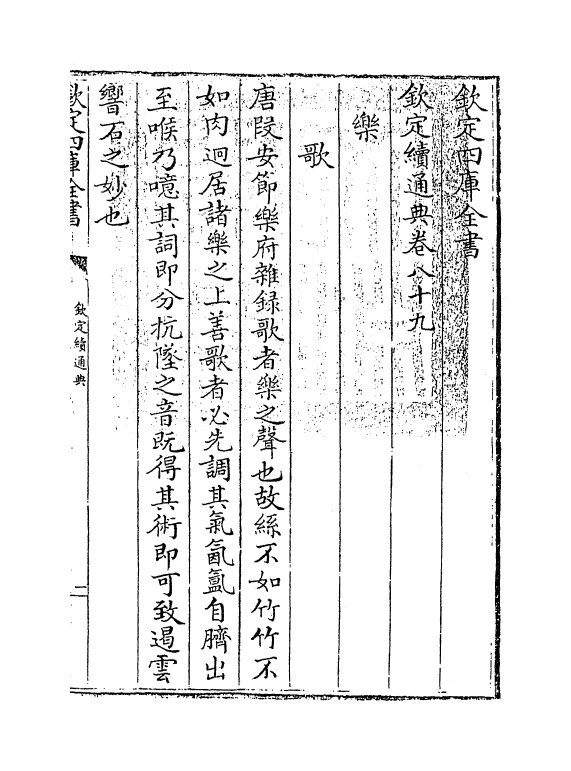 欽定四庫全書
欽定續通典卷八十九
樂
歌
唐段安節樂府雜録歌者樂之聲也故絲不如竹竹不
如肉迥居諸樂之上善歌者必先調其氣氤氳自臍出
至喉乃噫其詞即分抗墜之音既得其術即可致遏雲
響石之妙也
欽定四庫全書
欽定續通典
二